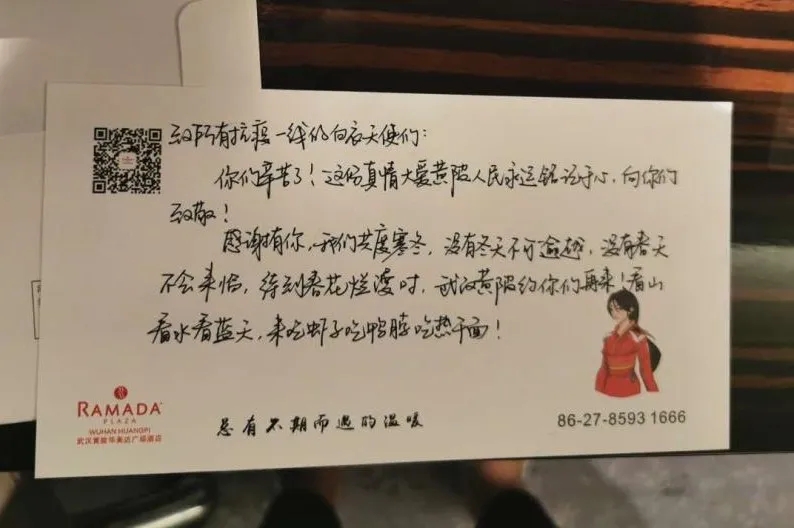 致所有抗疫一线的白衣天使们：
你们辛苦了！这份真情大爱黄陂人民永远铭记于心，向你们
致敬！
感谢有你，我们共度寒冬，没有冬天不可逾越，没有春天
不会来临，待到春花烂漫时，武汉黄陂约你们再来！看山
看水看蓝天，来吃虾子吃鸭脖吃热干面！
RAMADA
PLAZA
WUHAN HUANGPI
武汉黄陂华美达广场酒店
总有不期而遇的温暖
86-27-8593 1666